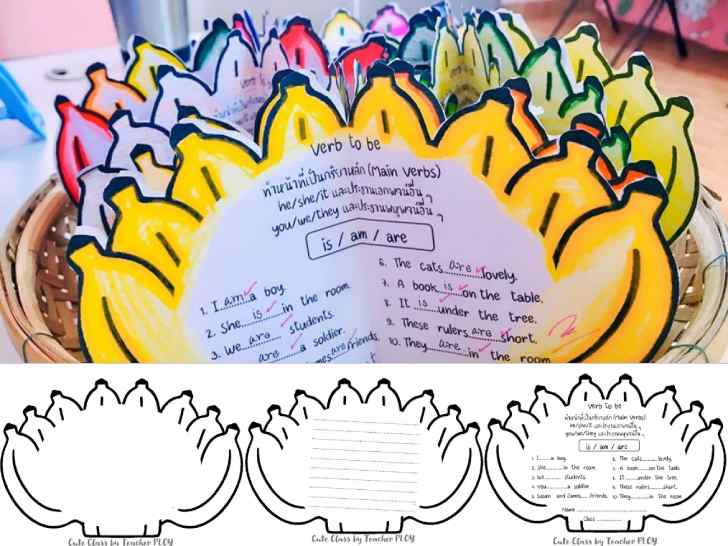 Verb to be
ทำหน้าที่เป็นกริยาหลัก (Main Verbs)
he/she/it และประธานเอกพจน์อื่น ๆ
you/we/they และประธานพหูพจน์อื่น ๆ
is / am / are
1. I...am...a boy.
2. She...is...in the room
3. We...are...students.
are...a soldier.
are...friends.
6. The cats...are...lovely.
7. A book...is...on the table.
8. It...is...under the tree.
9. These rulers...are...short.
10. They...are...in the room
Cute Class by Teacher PLOY
Cute Class by Teacher PLOY
Verb to be
ทำหน้าที่เป็นกริยาหลัก (Main Verbs)
he/she/it และประธานเอกพจน์อื่น ๆ
you/we/they และประธานพหูพจน์อื่น ๆ
is / am / are
1. I.......a boy.
2. She.......in the room
3. We.......students.
4. You.......a soldier
5. Susan and James.......friends.
6. The cats.......lovely.
7. A book.......on the table.
8. It.......under the tree.
9. These rulers.......short.
10. They.......in the room
Name
Class
Cute Class by Teacher PLOY